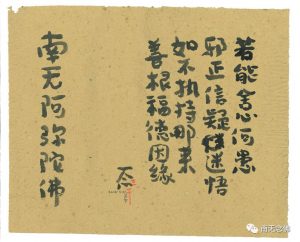 若能心何患
邪正信疑迷悟
如不执持那来
善根福德因緣
南无阿弥陀佛
南无念佛